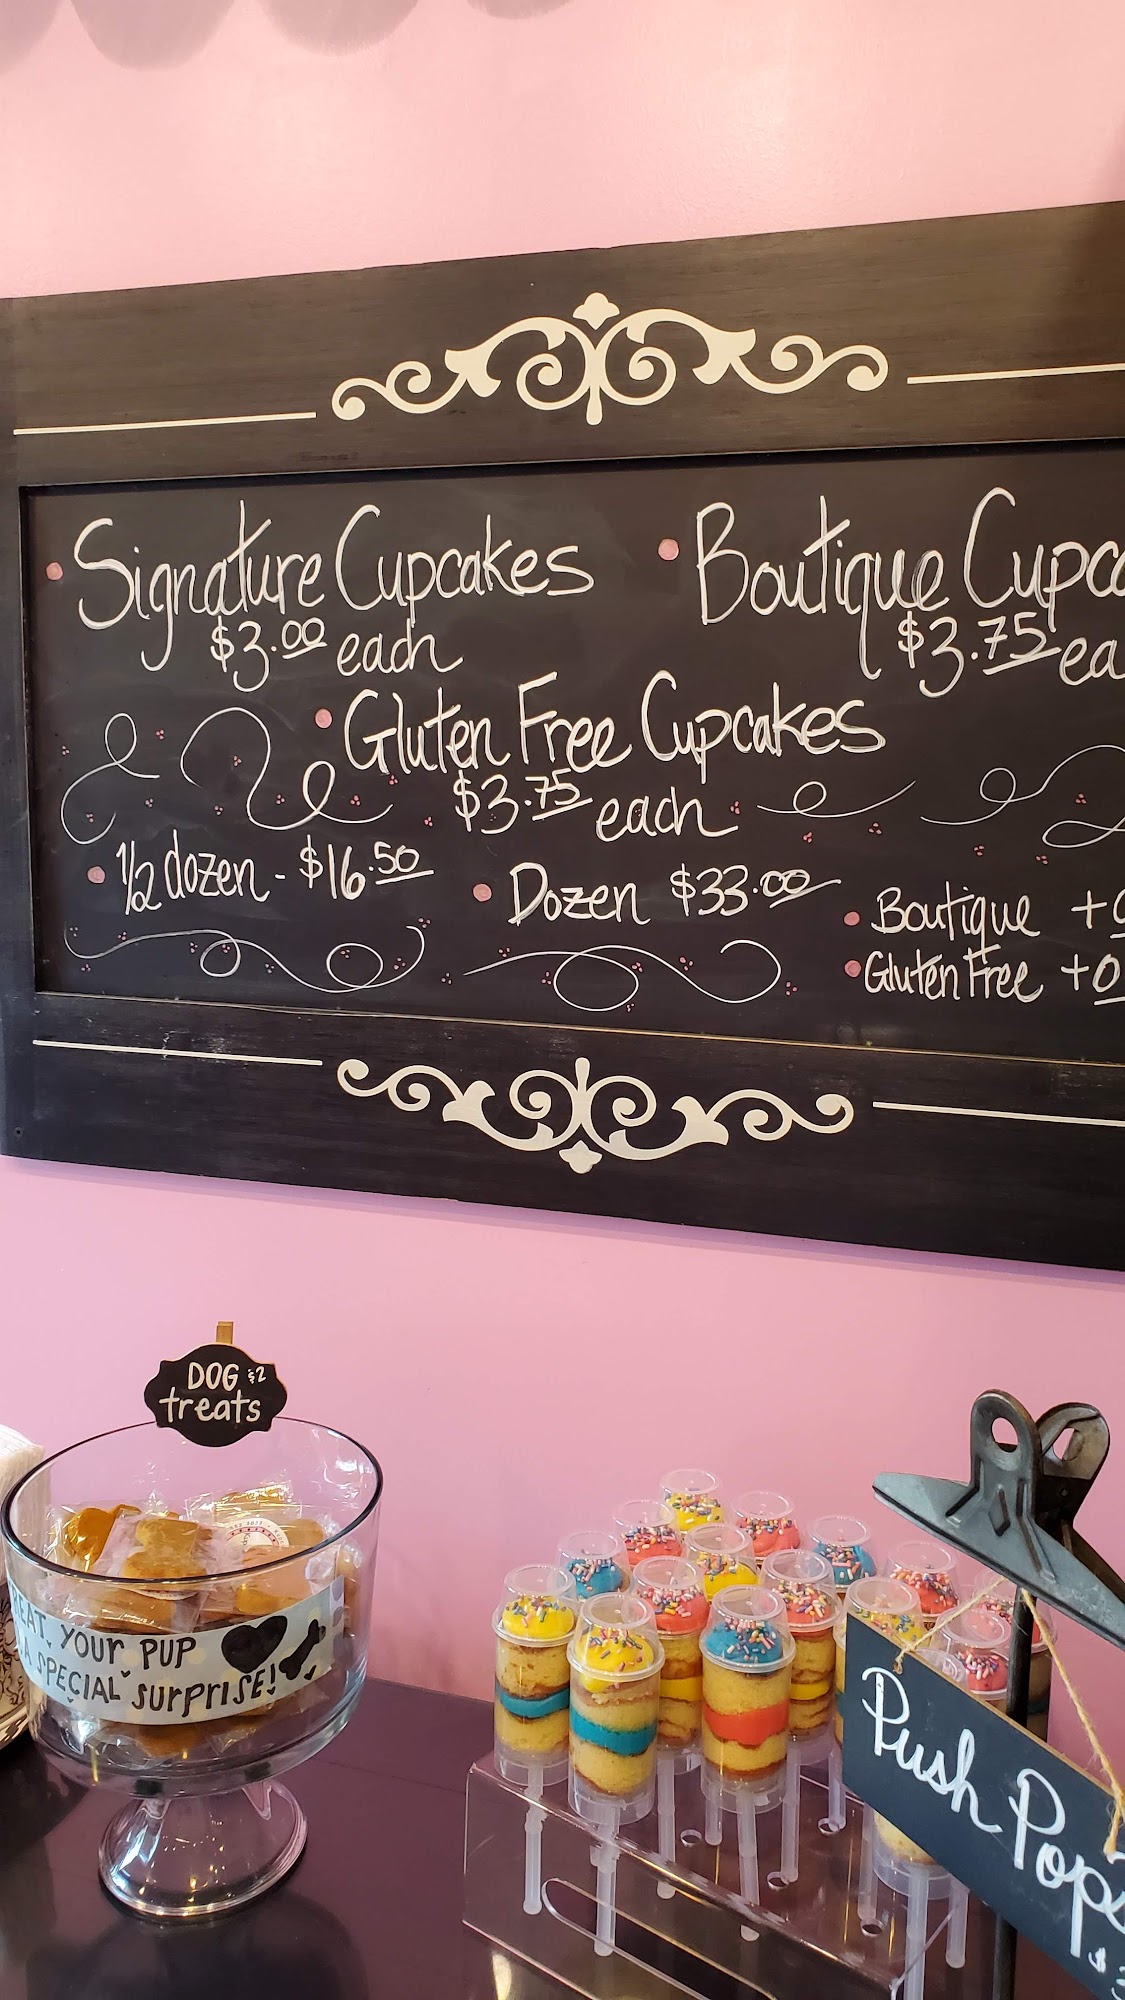 Signature Cupcakes
$3.00 each
Boutique
$3.75
Gluten Free Cupcakes
$3.75 each
1/2 dozen - $16.50
Dozen $33.00
Boutique +
Gluten Free +
DOG $2
treats
YOUR PUP
A SPECIAL SURPRISE!
Push Pops